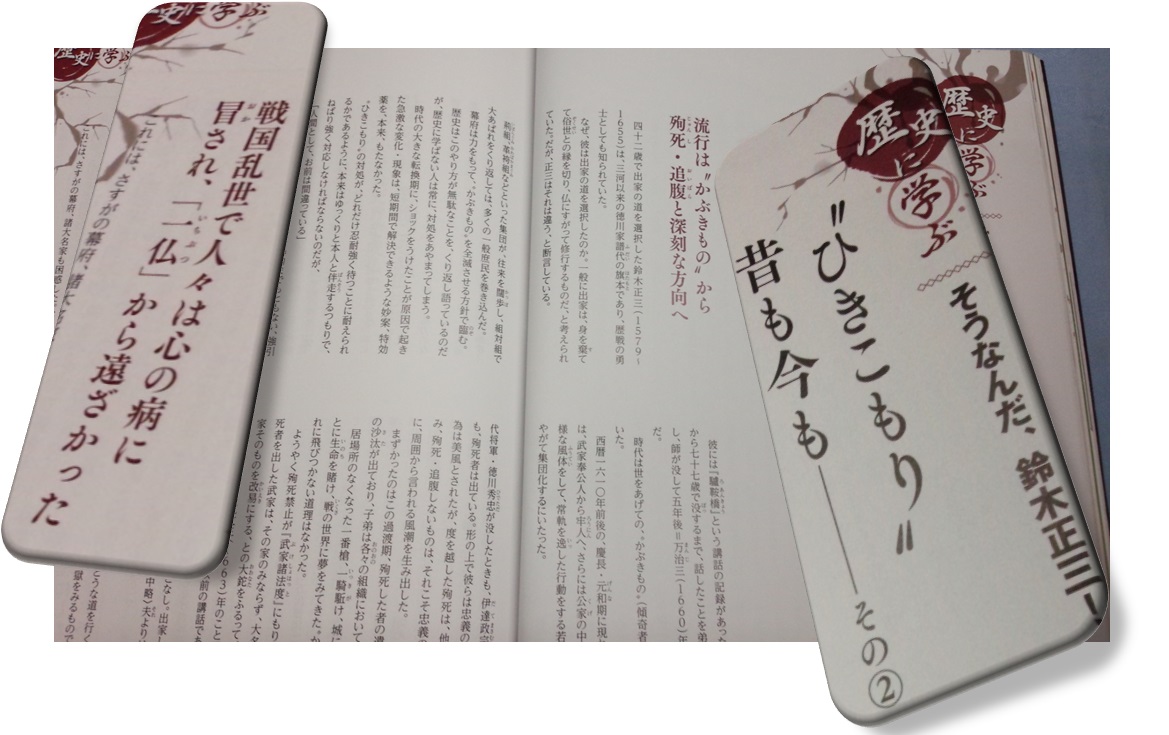 歴史に学ぶ
そうなんだ、鈴木正三！
〝ひきこもり〟
昔も今も――その②
歴史に学ぶ
流行は〝かぶきもの〟から
殉死・追腹と深刻な方向へ
四十二歳で出家の道を選択した鈴木正三（1579～
1655）は、三河以来の徳川家譜代の旗本であり、歴戦の勇
士としても知られていた。
なぜ、彼は出家の道を選択したのか。一般に出家は、身を棄て
て俗世との縁を切り、仏にすがって修行するものだ、と考えられ
ていた。だが、正三はそれは違う、と断言している。
彼には『驢鞍橋』という講話の記録があった
から七十七歳で没するまで、話したことを弟
し、師が没して五年後＝万治三（1660）年
だ。
時代は世をあげての、〝かぶきもの〟（傾奇者
いた。
西暦一六一〇年前後の、慶長・元和期に現
は、武家奉公人から牢人へ、さらには公家の中
様な風体をして、常軌を逸した行動をする若
やがて集団化するにいたった。
組、革袴組などといった集団が、往来を闊歩し、組対組で
大あばれをくり返しては、多くの一般庶民を巻き込んだ。
幕府は力をもって、〝かぶきもの〟を全滅させる方針で臨む、
歴史はこのやり方が無駄なことを、くり返し語っているのだ
が、歴史に学ばない人は常に、対処をあやまってしまう。
時代の大きな転換期に、ショックをうけたことが原因で起き
た急激な変化・現象は、短期間で解決できるような妙案、特効
薬を、本来、もたなかった。
〝ひきこもり〟の対処が、どれだけ忍耐強く待つことに耐えられ
るかであるように、本来はゆっくりと本人と伴走するつもりで、
ねばり強く対応しなければならないのだが、
「人間として、お前は間違っている」
代将軍・徳川秀忠が没したときも、伊達政宗
も、殉死者は出ている。形の上で彼らは忠義の
為は美風とされたが、度を越した殉死は、他
み、殉死・追腹しないものは、それこそ忠義の
に、周囲から言われる風潮を生み出した。
まずかったのはこの過渡期、殉死した者の遺
の沙汰が出ており、子弟は各々の組織において
居場所のなくなった一番槍、一騎駈け、城に
とに生命を賭け、戦の世界に夢をみてきた。か
れに飛びつかない道理はなかった。
ようやく殉死禁止が『武家諸法度』にもり
死者を出した武家は、その家のみならず、大名
家そのものを改易にする、との大鉈をふるって
663）年のこと
前の講話であ
こなし。出家し
中略）夫より
こうな道を行く
獄をみるもので
歴史に学ぶ
戦国乱世で人々は心の病に
冒され、「一仏」から遠ざかった
これには、さすがの幕府、諸大
歴史に学ぶ
これには、さすがの幕府、諸大名家も困惑